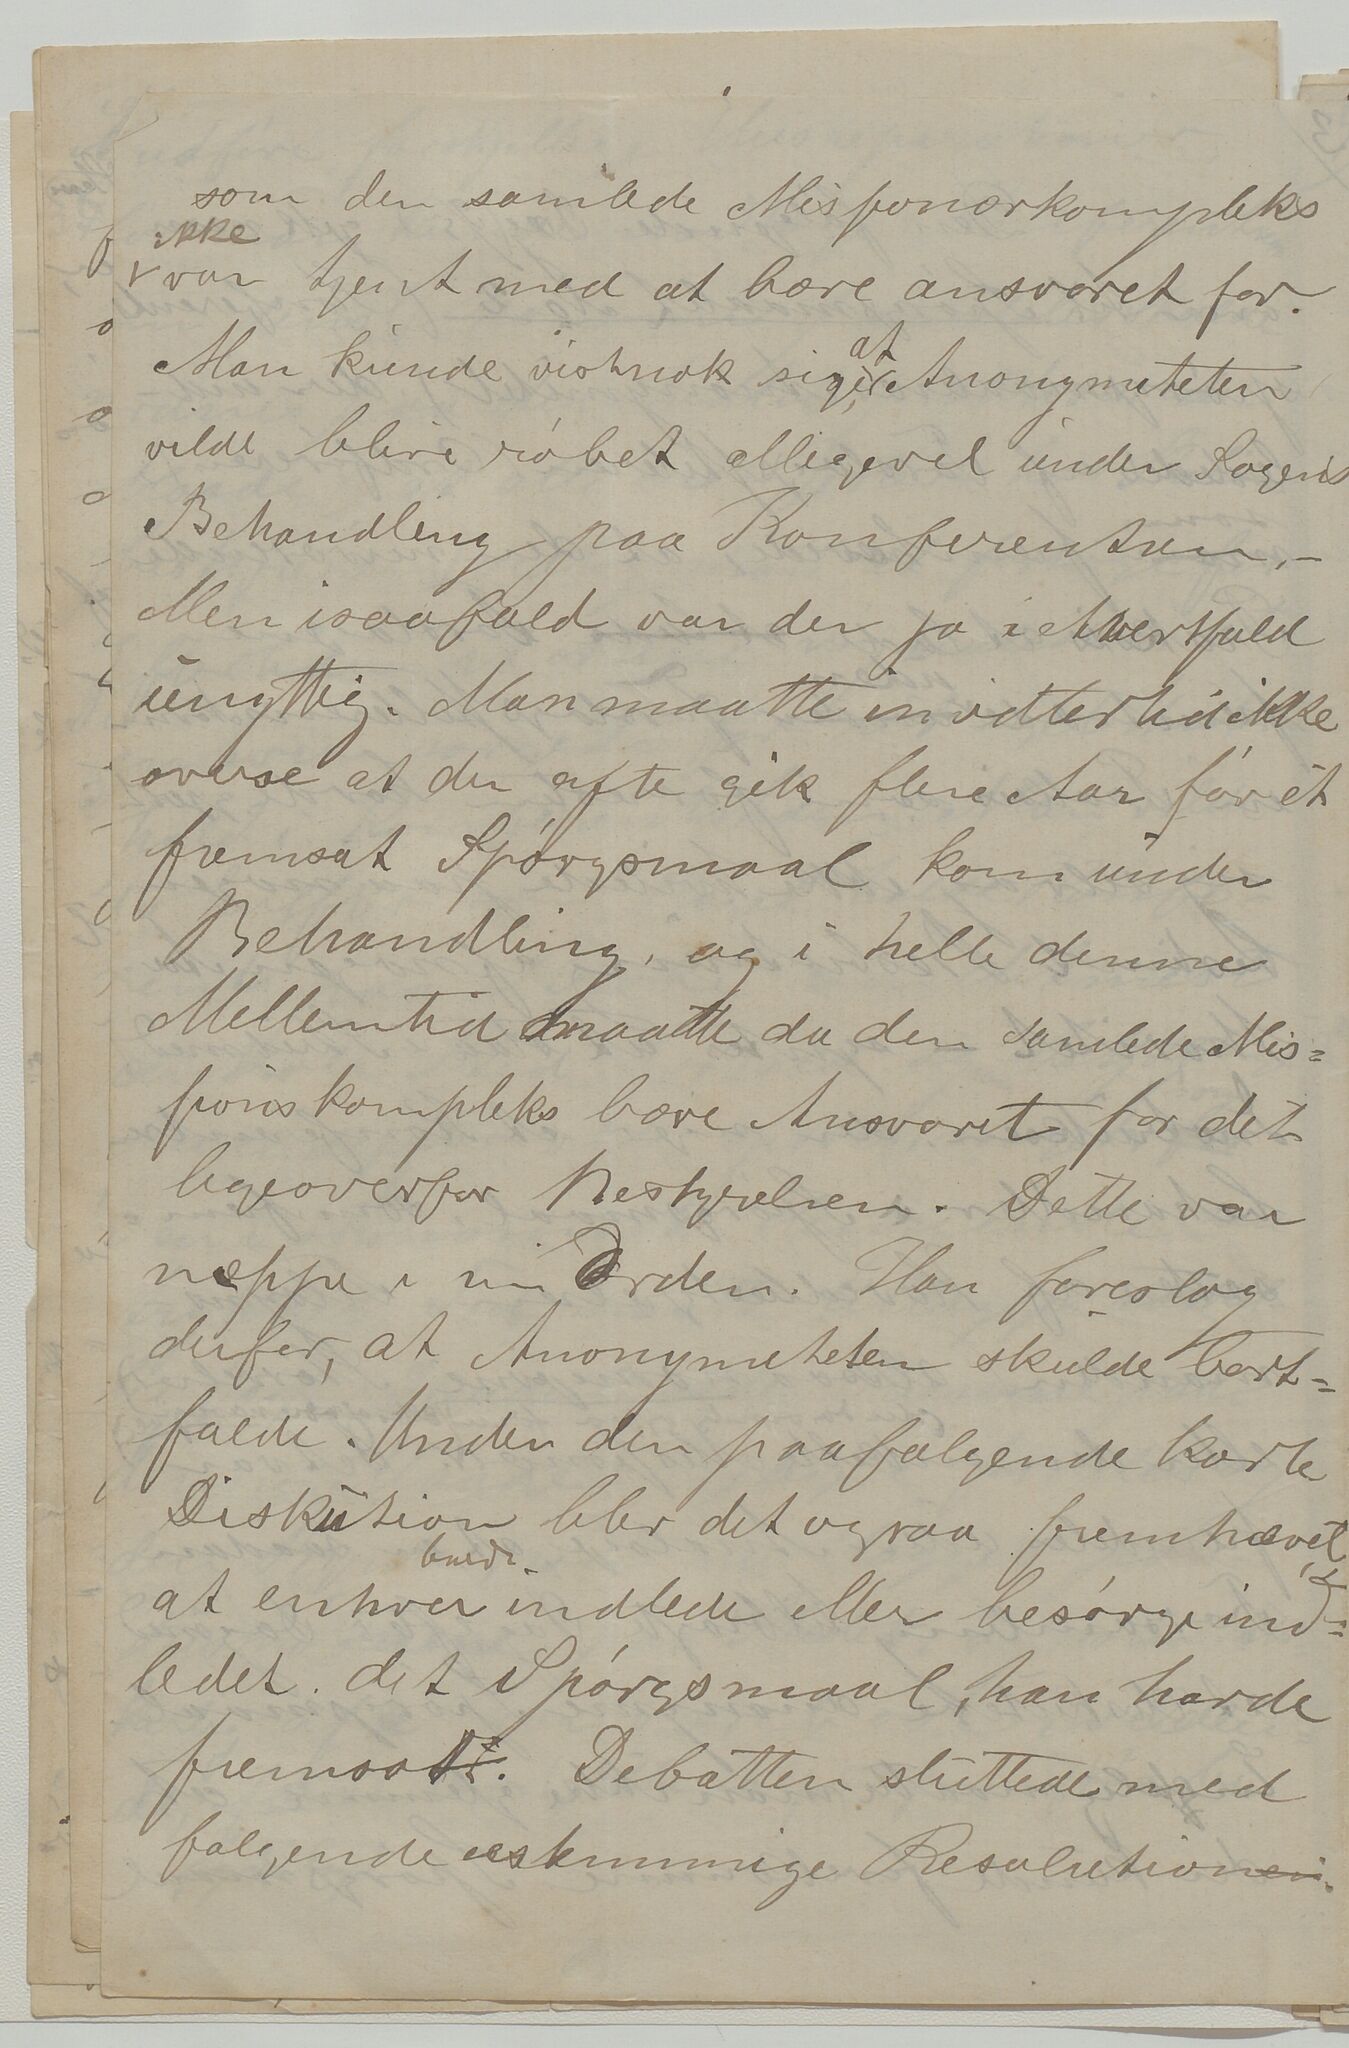 som den samlede Missionærkompleks
ikke
var tjent med at bære ansvaret for.
at
Man kunde vistnok sige Anonymiteten
vilde blive røbet alligevel under Sagens
Behandling paa Konferentsen, –
Men isaafald var den jo i ethvertfald
unyttig. Man maatte imidlertid ikke
overse at der ofte gik flere Aar før et
fremsat Spørgsmaal kom under
Behandling, og i hele denne
Mellemtid maatte da den samlede Mis=
sionskompleks bære Ansvaret for det
ligeoverfor Bestyrelsen. Dette var
neppe i sin Orden. Han foreslog
derfor, at Anonymiteten skulde bort=
falde. Under den paafølgende korte
Diskution blev det ogsaa fremhævet,
burde
at enhver indlede eller besørge ind=
ledet det Spørgsmaal, han havde
fremsat. Debatten sluttede med
følgende enstemmige Resolution